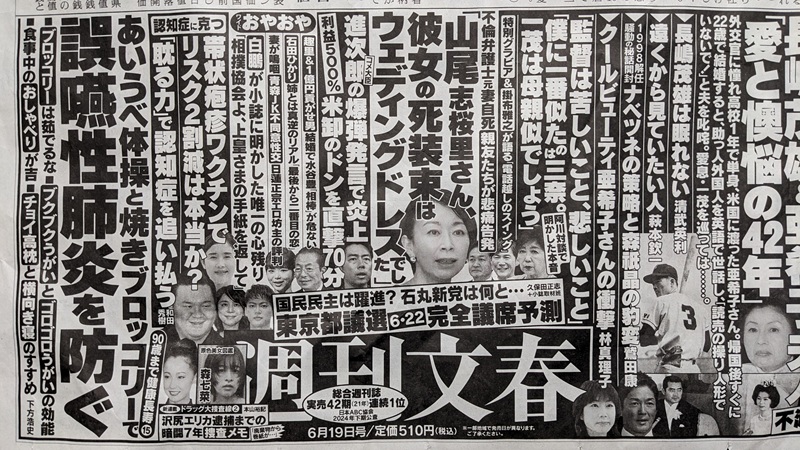 長嶋茂雄&亜希子夫
「愛と懊悩の42年」
外交官に憧れ高校1年で単身、米国に渡った亜希子さん。帰国後すぐに
22歳で結婚すると、助っ人外国人を英語で世話し、読売の操り人形で
いないで」と夫を応援。愛息・一茂を巡っては……。
▼長嶋茂雄は眠れない 清武英利
▼遠くから見ていたい人
1998解任騒動の秘話開封
ナベツネの策略と森祇晶の豹変 鷲田康
▼クールビューティ亜希子さんの衝撃 林真理子
監督は苦しいこと、悲しいこと
僕に一番似たのは三奈。
一茂は母親似でしょう」
阿川対談で明かした本音
特別グラビア&掛布雅之が語る「電話越しのスイング」
不倫弁護士元妻自死 親友たちが悲痛告発
「山尾志桜里さん、
彼女の死装束は
ウェディングドレスでした」
進次郎の爆弾発言で炎上
利益500%コメ大臣 米卸のドンを直撃70分
おやおや
「白鵬」が小誌に明かした唯一の心残り
「相撲協会よ、上皇さまの手紙を返して」
認知症に克つ
帯状疱疹ワクチンで
リスク2割減は本当か?
「耽る力」で認知症を追い払う
和田秀樹
あいうべ体操と焼きブロッコリーで
誤嚥性肺炎を防ぐ
▪ブロッコリーは茹でるな▪ブクブクうがいとゴロゴロうがいの効能
▪食事中のおしゃべりが吉▪チョイ高枕と横向き寝のすすめ 下方浩史
90歳まで健康長寿⑮
国民民主は躍進? 石丸新党は何と…
久保田正志+小誌取材班
東京都議選6・22完全議席予測
週刊文春
原色美女図鑑
森七菜
新連載 ドラッグ大捜査線② 本山裕記
沢尻エリカ逮捕までの
暗闘7年 捜査メモ
総合週刊誌
実売42期(21年)連続1位
日本ABC協会
2024年下期公査
6月19日号/定価510円(税込)
※一部地域で発売日が異なります。
ご了承ください。
3